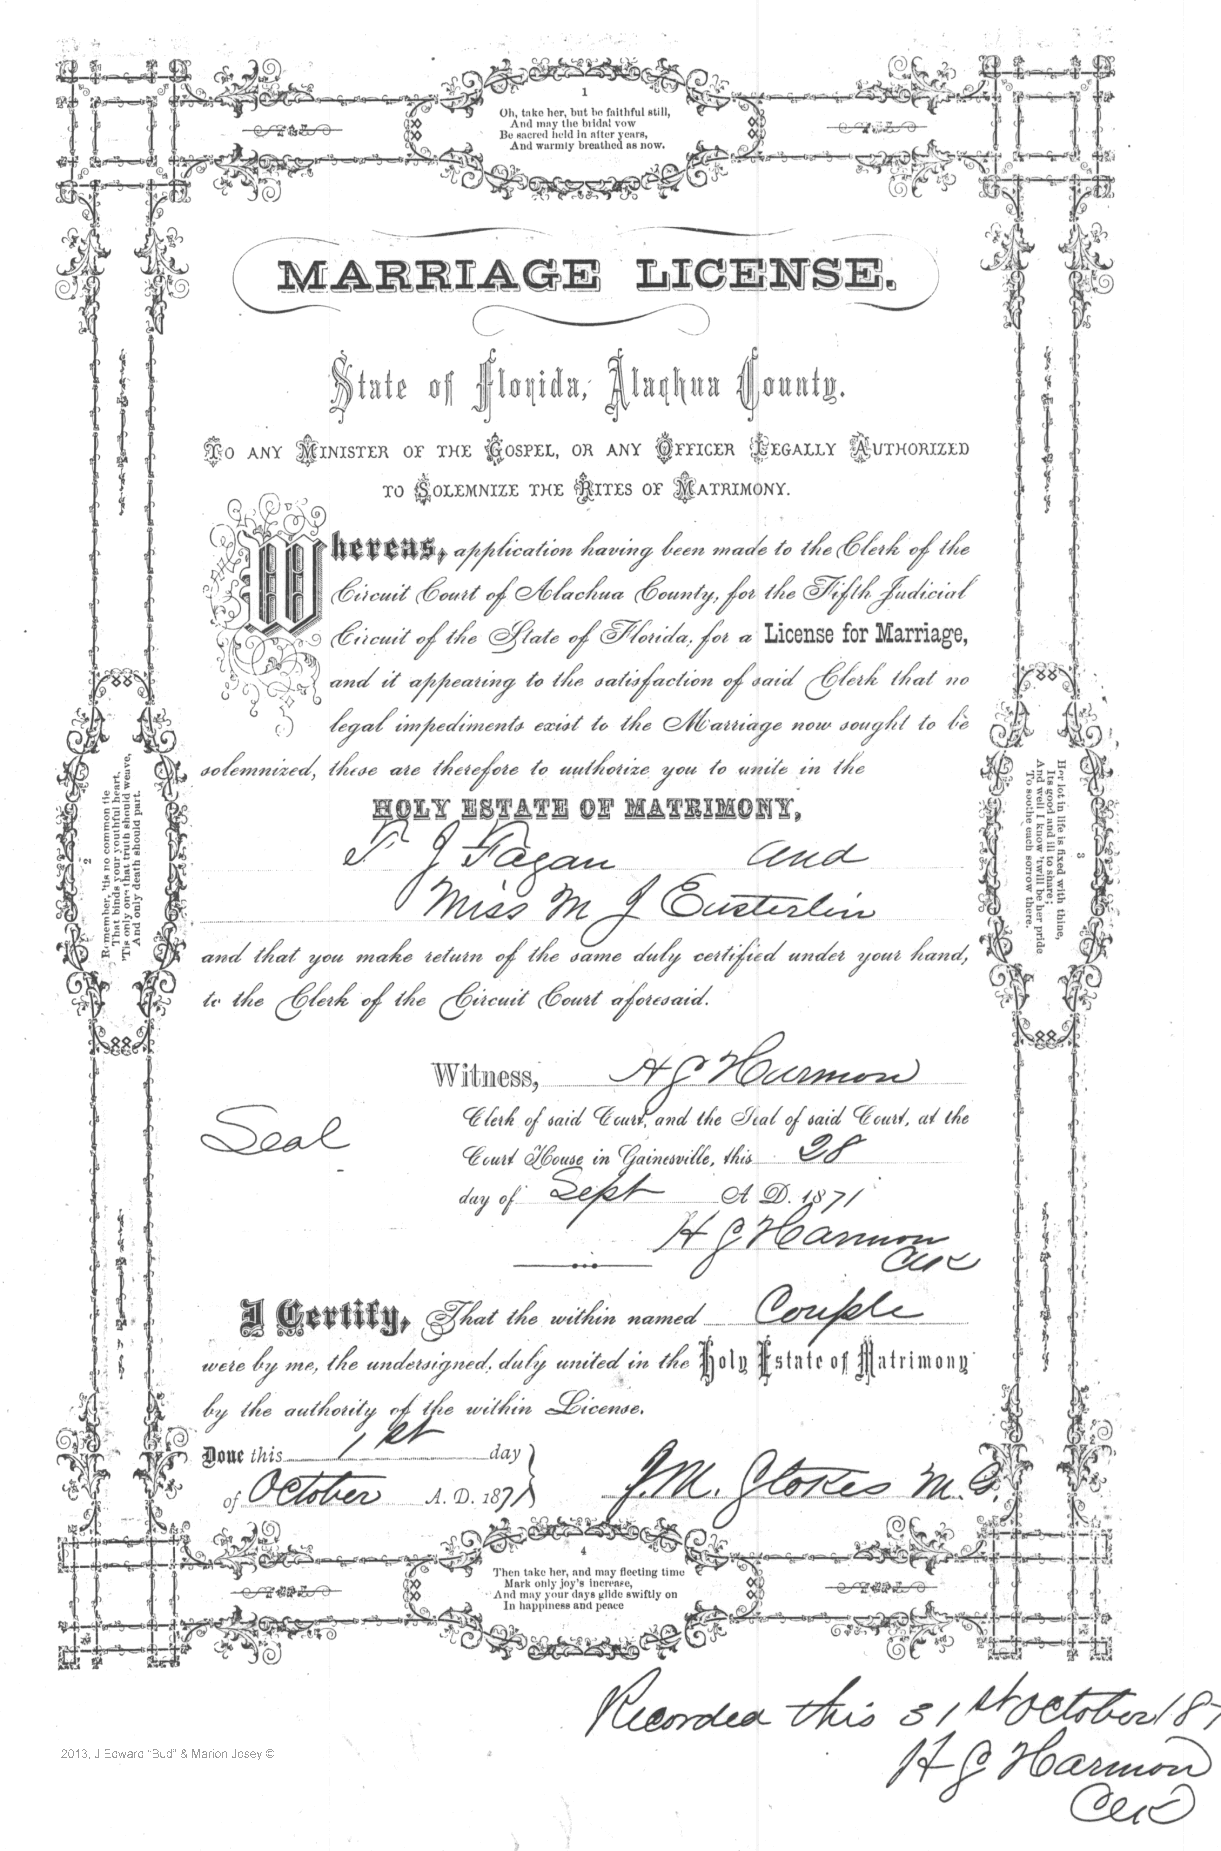 1
Oh, take her, but be faithful still,
And may the bridal vow
Be sacred held in after years,
And warmly breathed as now.
MARRIAGE LICENSE.
State of Florida, Alachua County.
TO ANY MINISTER OF THE GOSPEL, OR ANY OFFICER LEGALLY AUTHORIZED
TO SOLEMNIZE THE RITES OF MATRIMONY.
Whereas, application having been made to the Clerk of the
Circuit Court of Alachua County, for the Fifth Judicial
Circuit of the State of Florida, for a License for Marriage,
and it appearing to the satisfaction of said Clerk that no
legal impediments exist to the Marriage now sought to be
solemnized, these are therefore to authorize you to unite in the
HOLY ESTATE OF MATRIMONY,
F J Fagan and
Miss M J Eusterlin
and that you make return of the same duly certified under your hand,
to the Clerk of the Circuit Court aforesaid.
2
Remember, 'tis no common tie
That binds your youthful heart,
'Tis only one that truth should weave,
And only death should part.
3
Her lot in life is fixed with thine,
Its good and ill to share;
And well I know 'twill be her pride
To soothe each sorrow there.
Witness, H G Harmon
Clerk of said Court, and the Seal of said Court, at the
Seal
Court House in Gainesville, this 28
day of Sept A D. 1871
H G Harmon
Clk
I Certify, That the within named Couple
were by me, the undersigned, duly united in the Holy Estate of Matrimony
by the authority of the within License.
Done this 1st day
of October A. D. 1871
J. M. Stokes M. G.
4
Then take her, and may fleeting time
Mark only joy's increase,
And may your days glide swiftly on
In happiness and peace
Recorded this 31st October 187
H G Harmon
Clk
2013, J Edward "Bud" & Marion Josey ©